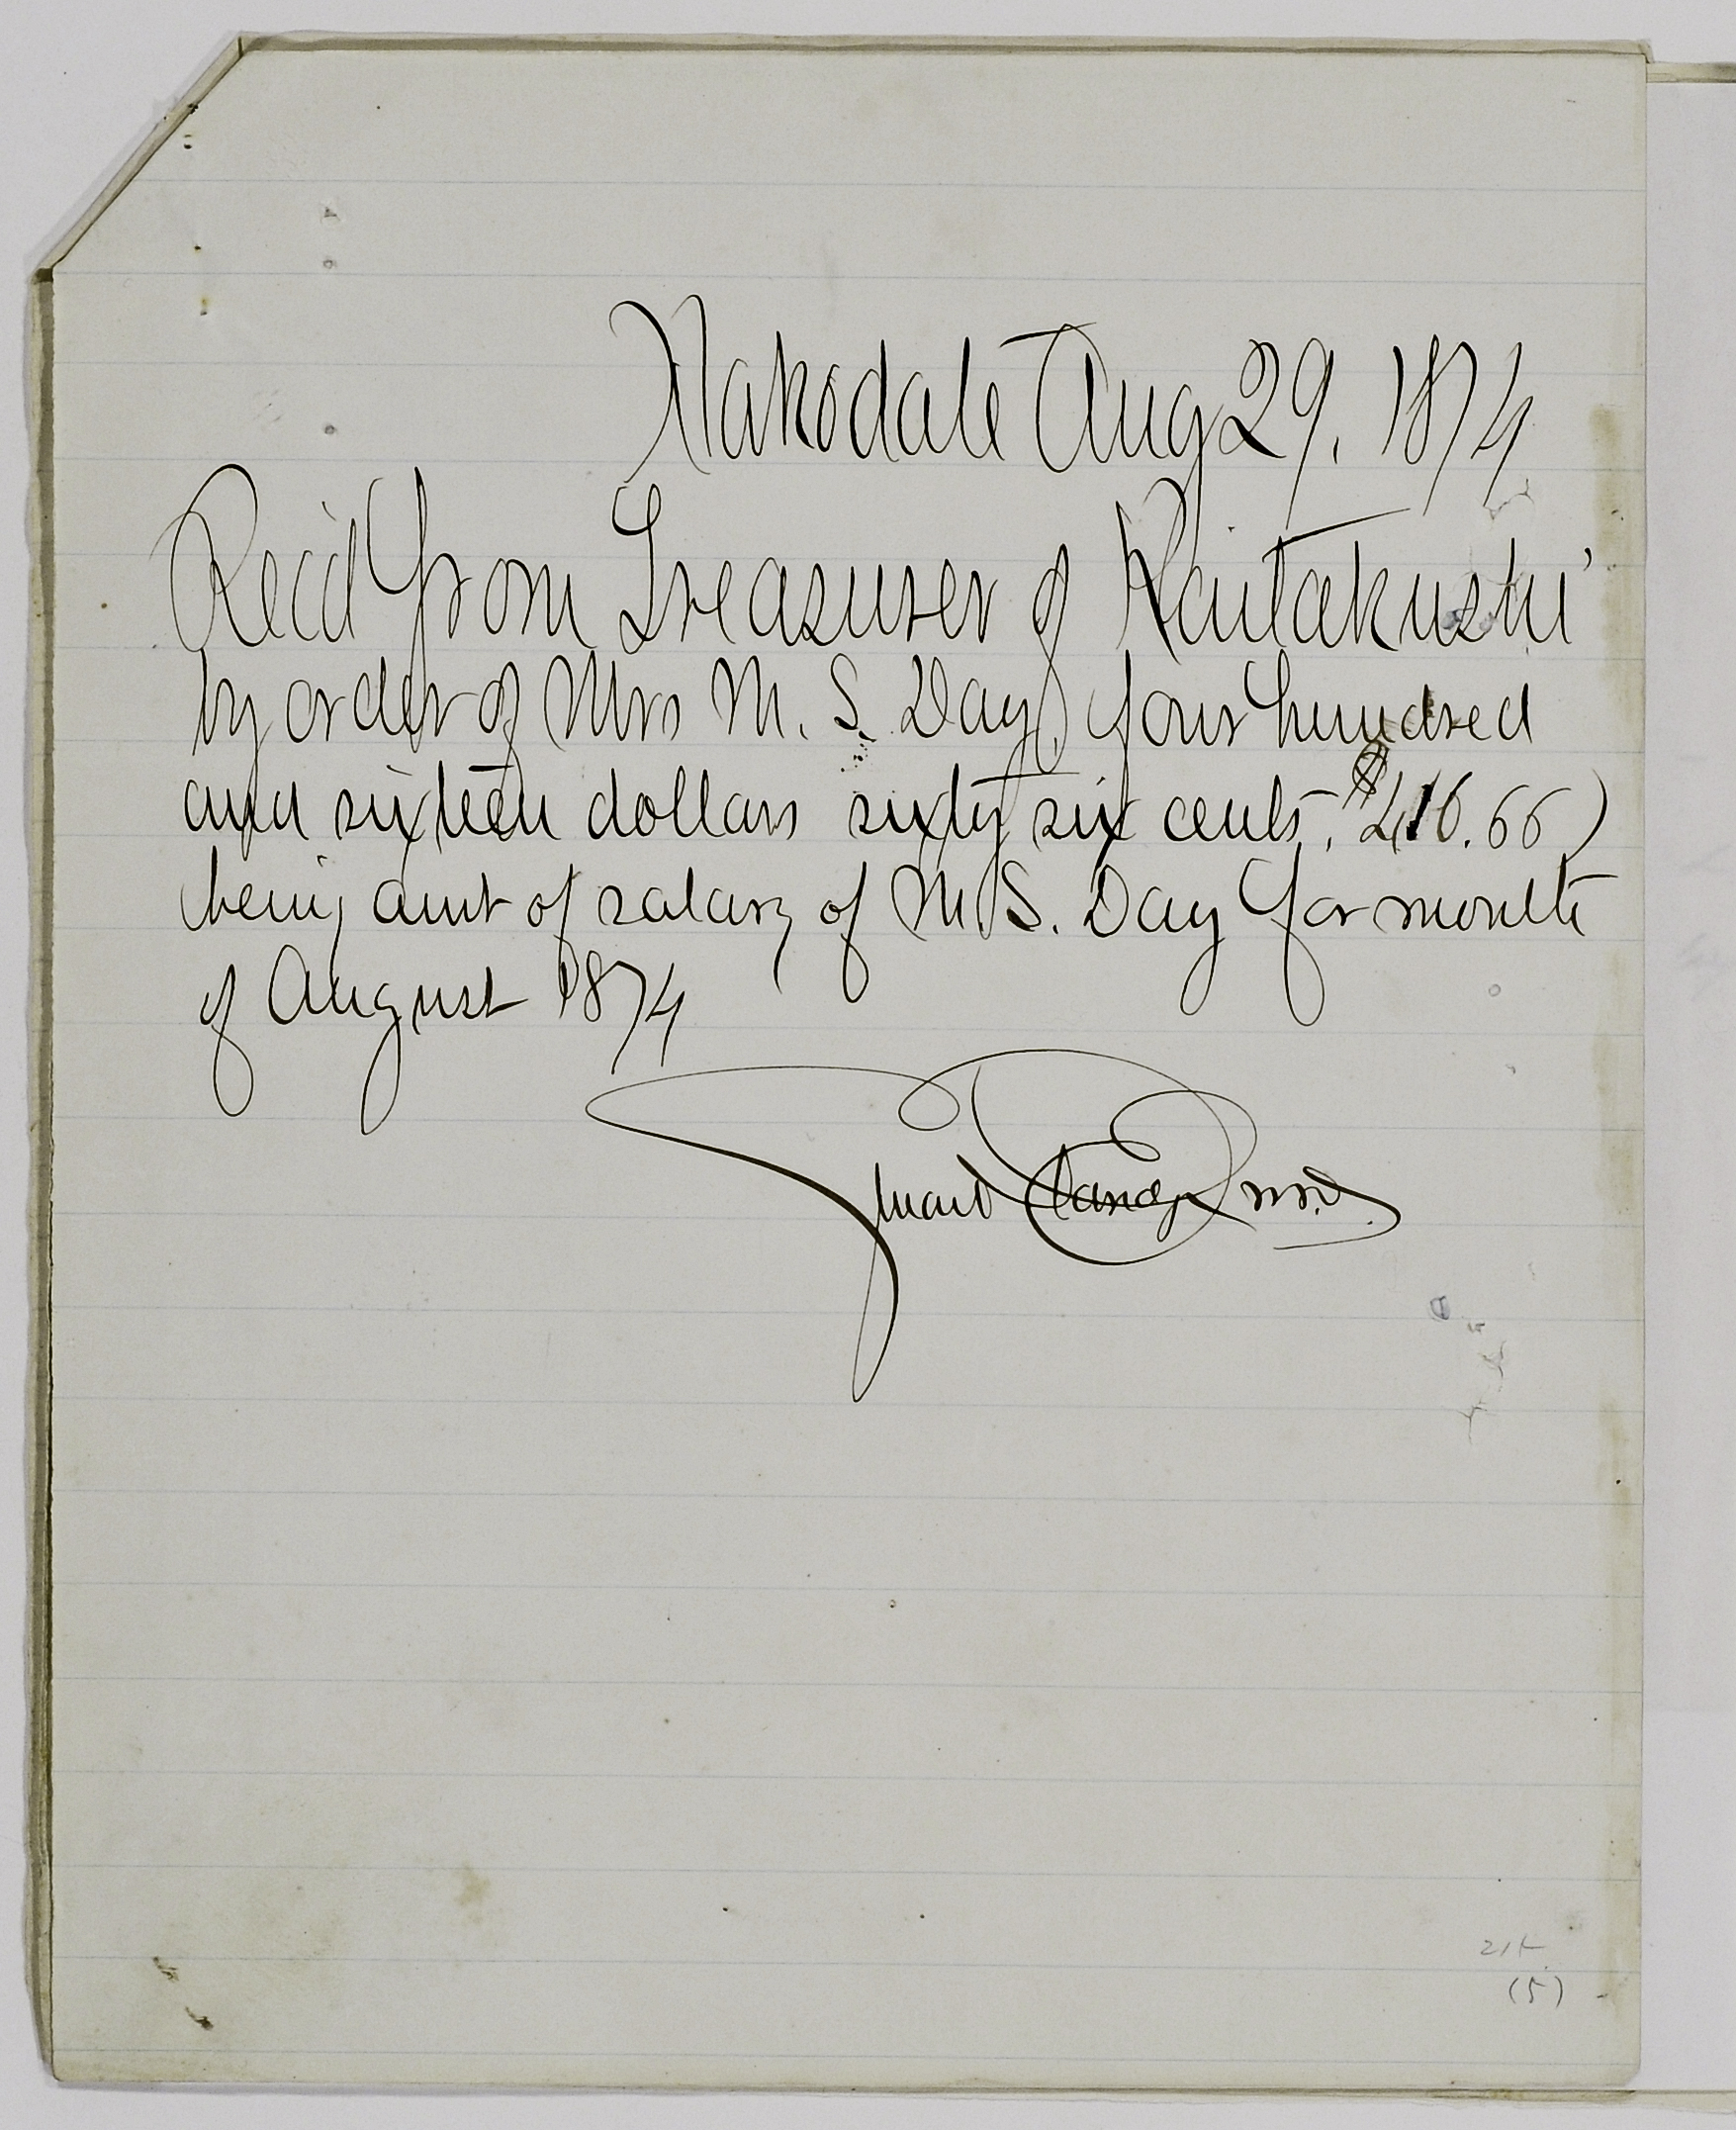 Hakodate Aug 29. 1874
Rec'd from Treasurer of Kaitakushi
by order of Mrs M. S. Day, four hundred
and sixteen dollars sixty six cents, $416.66)
being amt of salary of M. S. Day for month
of August 1874
M.D.
(5)